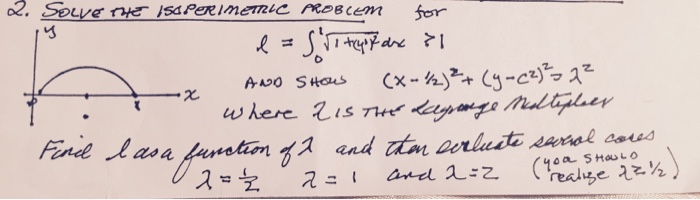 2. SOLVE THE ISOPERIMETRIC PROBLEM for
y
l = ∫₀¹ √1+(y')² dx ≥ 1
x
AND SHOW (x-½)² + (y-c2)² = λ²
where λ IS THE Lagrange Multiplier
Find l as a function of λ and then evaluate several cases
λ = ½ λ = 1 and λ = 2 (you SHOULD realize λ ≥ ½)